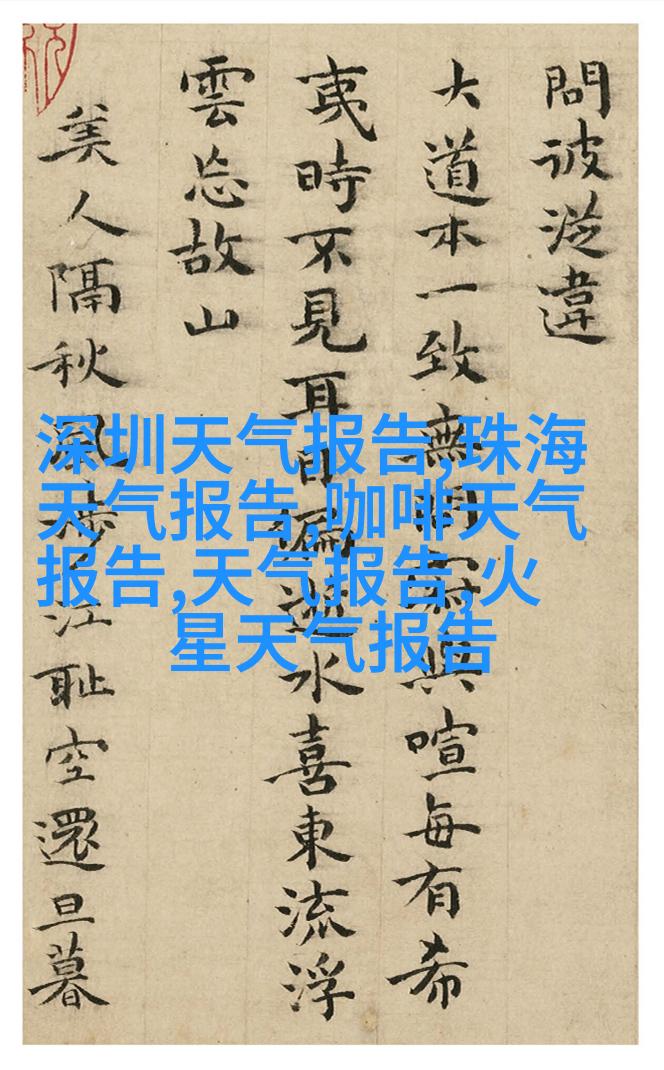 問彼從違
大道本一致無寂與喧每有希
夷時不見耳目偏逝水喜東流浮
雲忘故山
美人隔秋風涉江耻空還旦暮
深圳天气报告,珠海
天气报告,咖啡天气
报告,天气报告,火
星天气报告